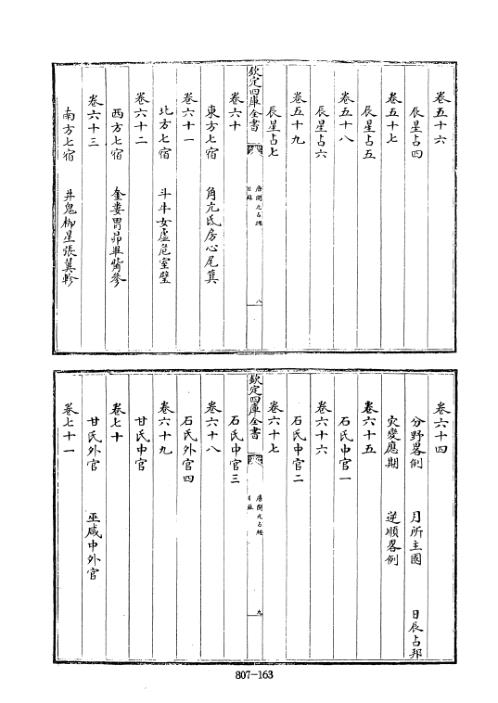 卷五十六
辰星占四
卷五十七
辰星占五
卷五十八
辰星占六
卷五十九
辰星占七
欽定四庫全書
唐開元占經
目錄
八
卷六十
東方七宿 角亢氐房心尾箕
卷六十一
北方七宿 斗牛女虛危室壁
卷六十二
西方七宿 奎婁胃昴畢觜參
卷六十三
南方七宿 井鬼柳星張翼軫
卷六十四
分野畧例 月所主國 日辰占邦
災變應期 逆順畧例
卷六十五
石氏中官一
卷六十六
石氏中官二
卷六十七
欽定四庫全書
唐開元占經
目錄
九
石氏中官三
卷六十八
石氏外官四
卷六十九
甘氏中官
卷七十
甘氏外官 巫咸中外官
卷七十一
807-163